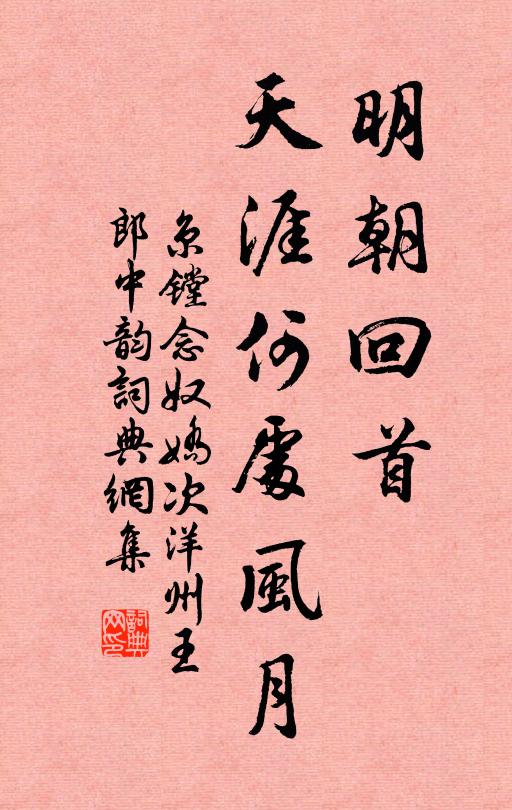 明朝回首
天涯何處風月
京鏜念奴嬌次洋州王
郎中韵詞典網集
詞典
网印